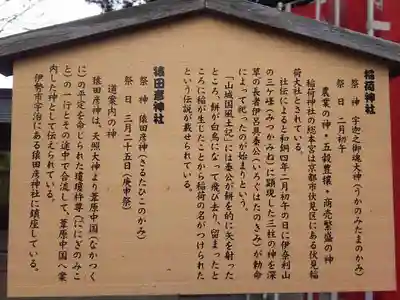 稲荷神社
祭神 宇迦之御魂大神(うかのみたまのかみ)
祭日 二月初午
農業の神・五穀豊穣・商売繁盛の神
稲荷神社の総本宮は京都市伏見区にある伏見稲
荷大社とされている。
社伝によると和銅四年二月初午の日に伊奈利山
の三ヶ峰(みつかみね)に顕現した三柱の神を深
草の長者伊呂具秦公(いろぐはたのきみ)が勅命
によって祀ったのが始まりという。
「山城国風土記」には秦公が餅を的に矢を射った
ところ、餅が白鳥になって飛び去り、留まったと
ころに稲が生じたことから稲荷の名がつけられた
という伝説が載せられている。
猿田彦神社
祭神 猿田彦神(さるたひこのかみ)
祭日 三月二十五日(庚申祭)
道案内の神
猿田彦神は、天照大神より葦原中国(なかつく
に)の平定を命じられた瓊瓊杵尊(ににぎのみこ
と)の一行とその途中で合流して、葦原中国へ案
内した神として伝えられている。
伊勢市宇治にある猿田彦神社に鎮座している。